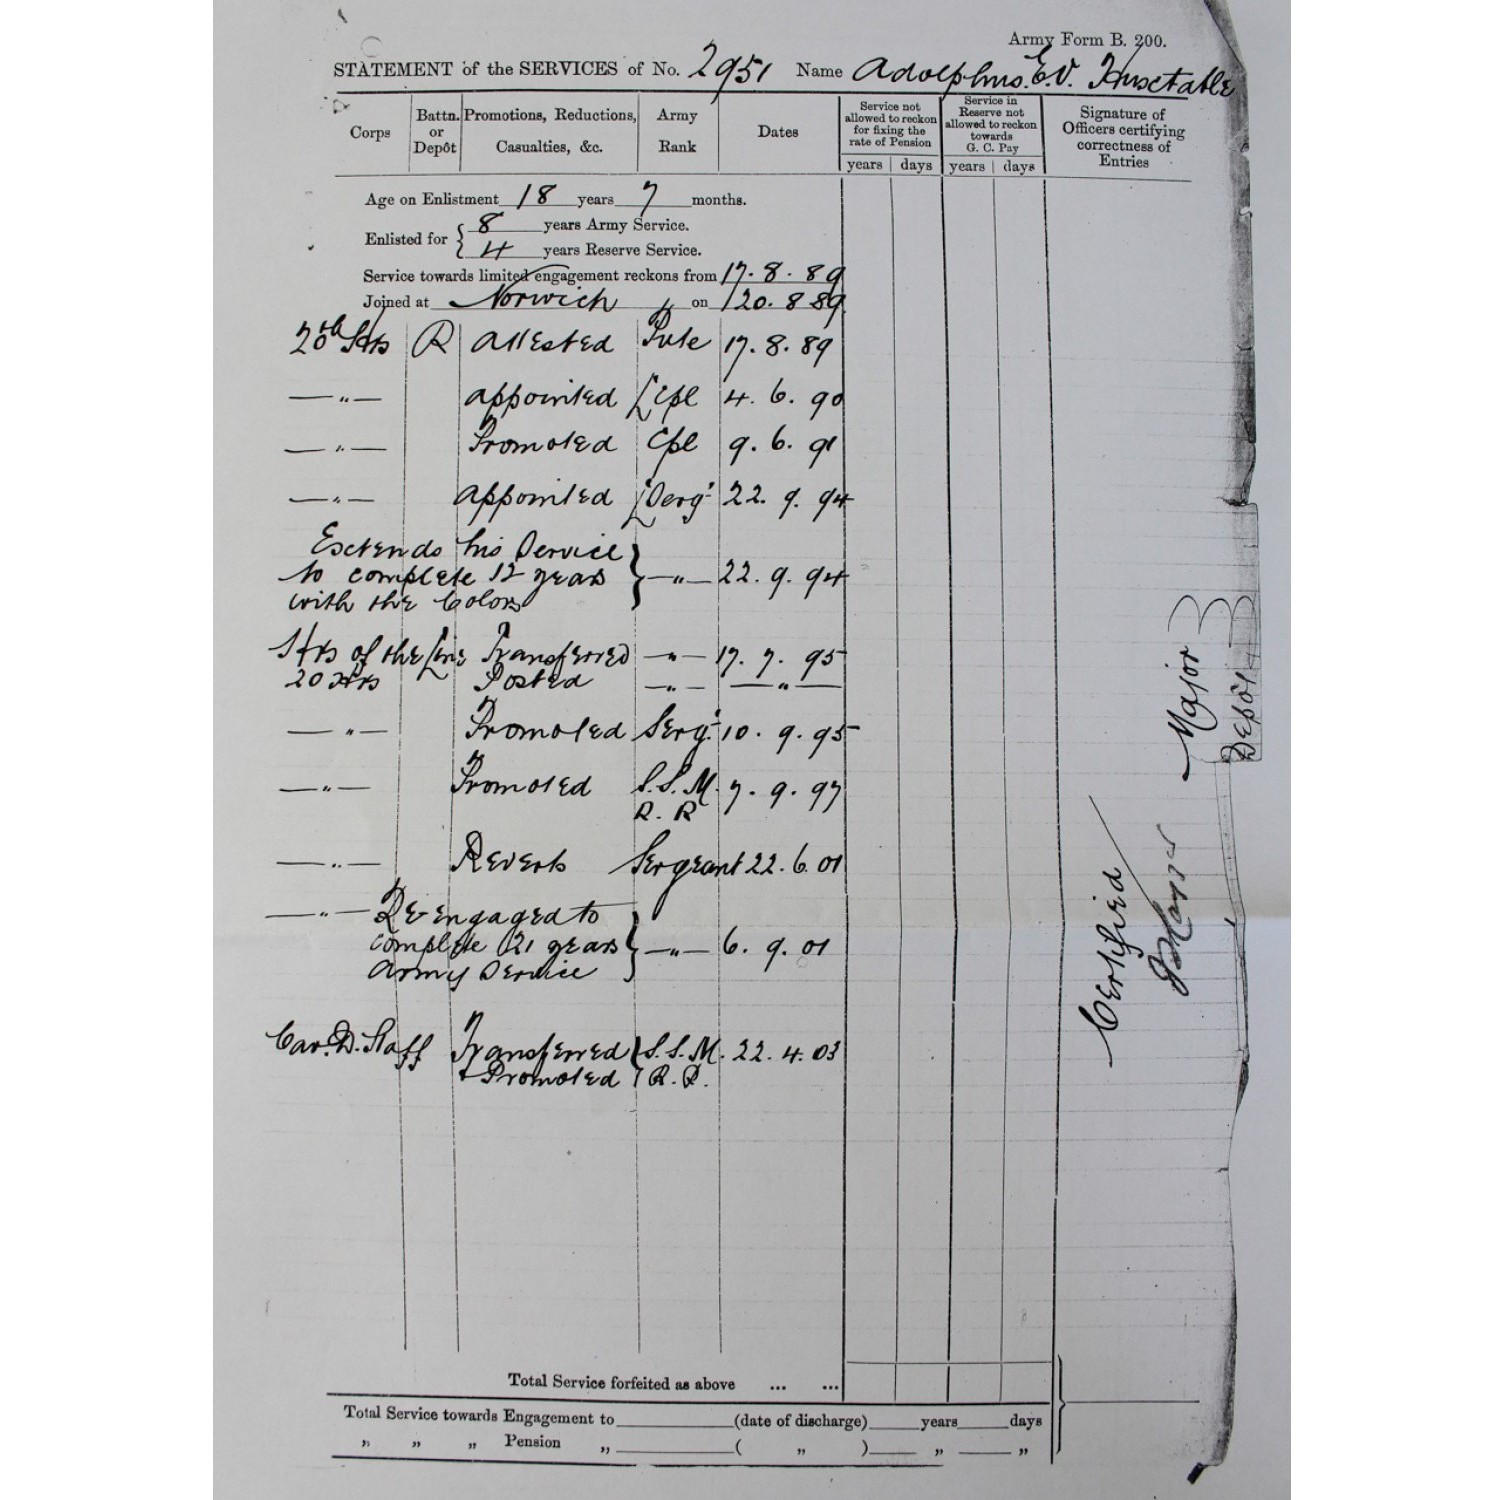 Army Form B. 200.
STATEMENT of the SERVICES of No. 2951 Name Adolphus. E.V. Huxtable
Corps
Battn. or Depôt
Promotions, Reductions, Casualties, &c.
Army Rank
Dates
Service not allowed to reckon for fixing the rate of Pension
years days
Service in Reserve not allowed to reckon towards G. C. Pay
years days
Signature of Officers certifying correctness of Entries
Age on Enlistment 18 years 7 months.
Enlisted for { 8 years Army Service.
4 years Reserve Service.
Service towards limited engagement reckons from 17. 8. 89
Joined at Norwich on 20. 8 89
20th Hrs R Attested Pvte 17. 8. 89
—"— appointed L/Cpl 4. 6. 90
—"— Promoted Cpl 9. 6. 91
—"— appointed L/Sergt 22. 9. 94
Extends his Service
to complete 12 years } —"— 22. 9. 94
with the Colors
Hrs of the Line Transferred —"— 17. 7. 95
20 Hrs Posted —"— —"—
—"— Promoted Sergt 10. 9. 95
—"— Promoted S.S.M. 7. 9. 97
R. R
—"— Reverts Sergeant 22. 6. 01
—"— Re-engaged to
complete 21 years } —"— 6. 9. 01
Army Service
Cav. D. Staff Transferred S.S.M. 22. 4. 03
+ Promoted R. R.
Certified
Major
Depôt
Total Service forfeited as above ... ...
Total Service towards Engagement to (date of discharge) years days
„ „ „ Pension „ ( „ ) „ „